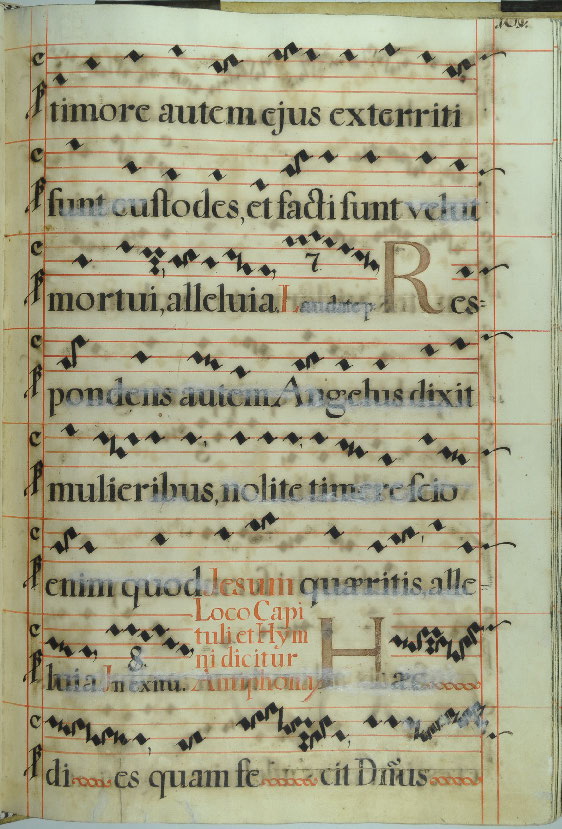 109.
timore autem ejus exterriti
sunt custodes, et facti sunt velut
7.
mortui, alleluia. Laudate p. Res-
pondens autem Angelus dixit
mulieribus, nolite timere scio
enim quod Jesum quæritis, alle-
Loco Capi
tuli, et Hym
ni dicitur
Antiphona,
8.
luia. In exitu. Hæc
di es quam fe cit Dñus